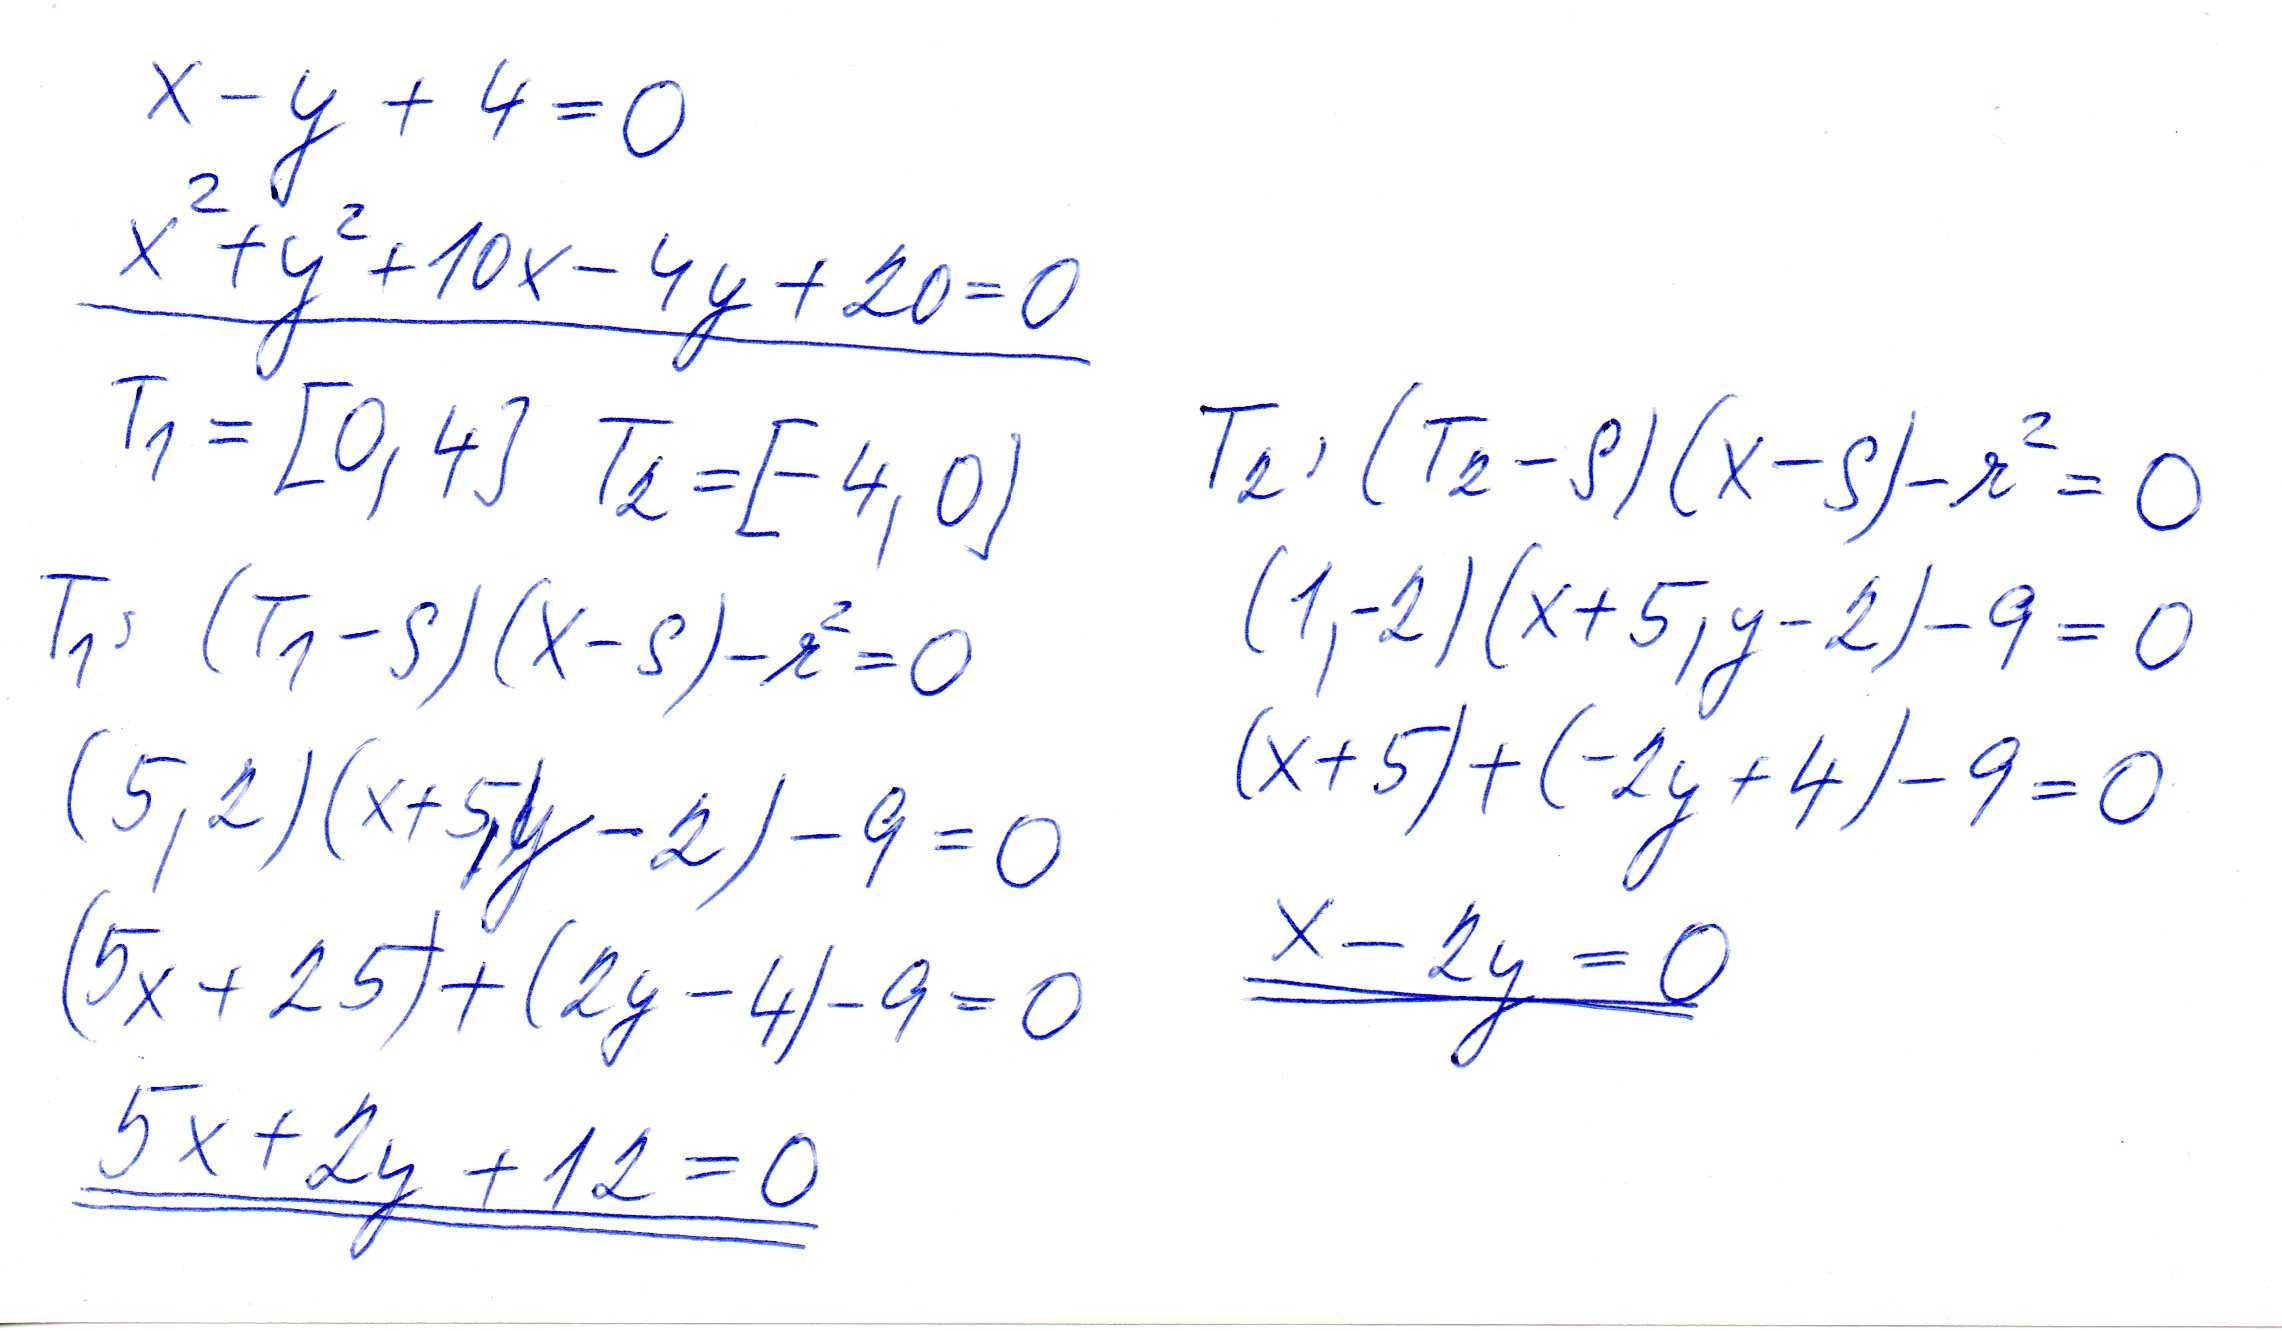 x - y + 4 = 0
x² + y² + 10x - 4y + 20 = 0
T₁ = [0, 4] T₂ = [-4, 0]
T₁: (T₁ - S)(X - S) - r² = 0
(5, 2)(x + 5, y - 2) - 9 = 0
(5x + 25) + (2y - 4) - 9 = 0
5x + 2y + 12 = 0
T₂: (T₂ - S)(X - S) - r² = 0
(1, -2)(x + 5, y - 2) - 9 = 0
(x + 5) + (-2y + 4) - 9 = 0
x - 2y = 0